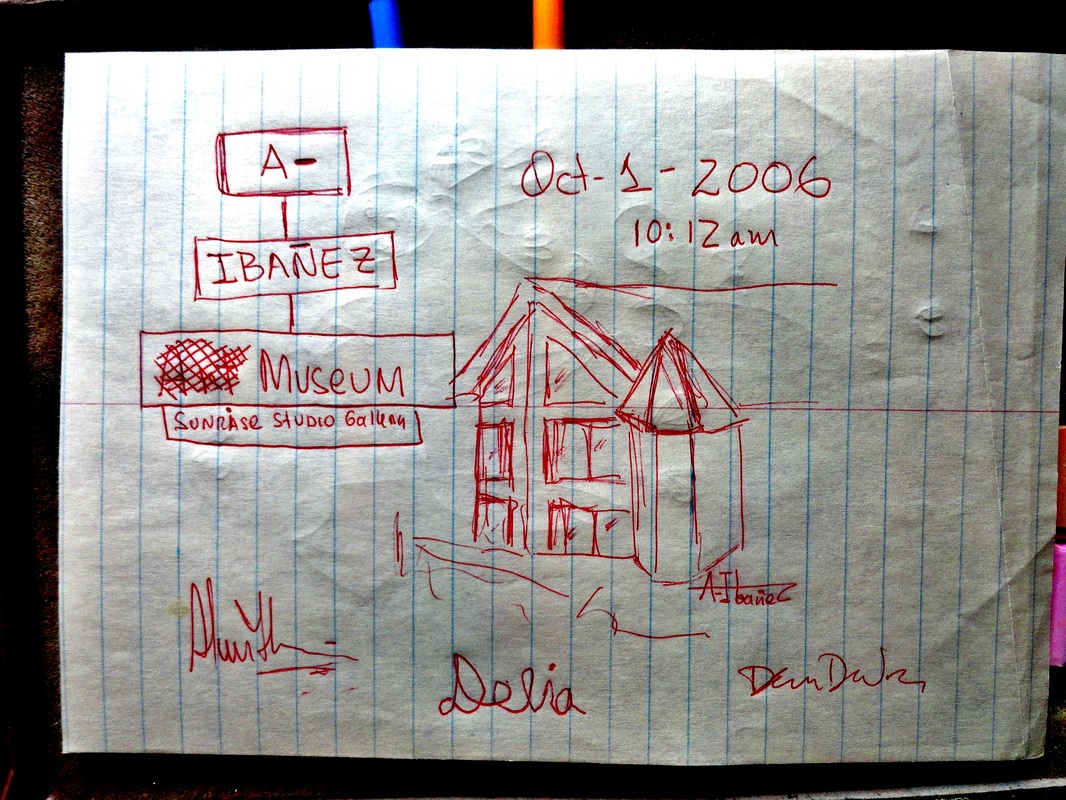 A-
IBAÑEZ
MUSEUM
SUNRASE STUDIO Gallery
Oct-1-2006
10:12am
A-Ibañez
Delia